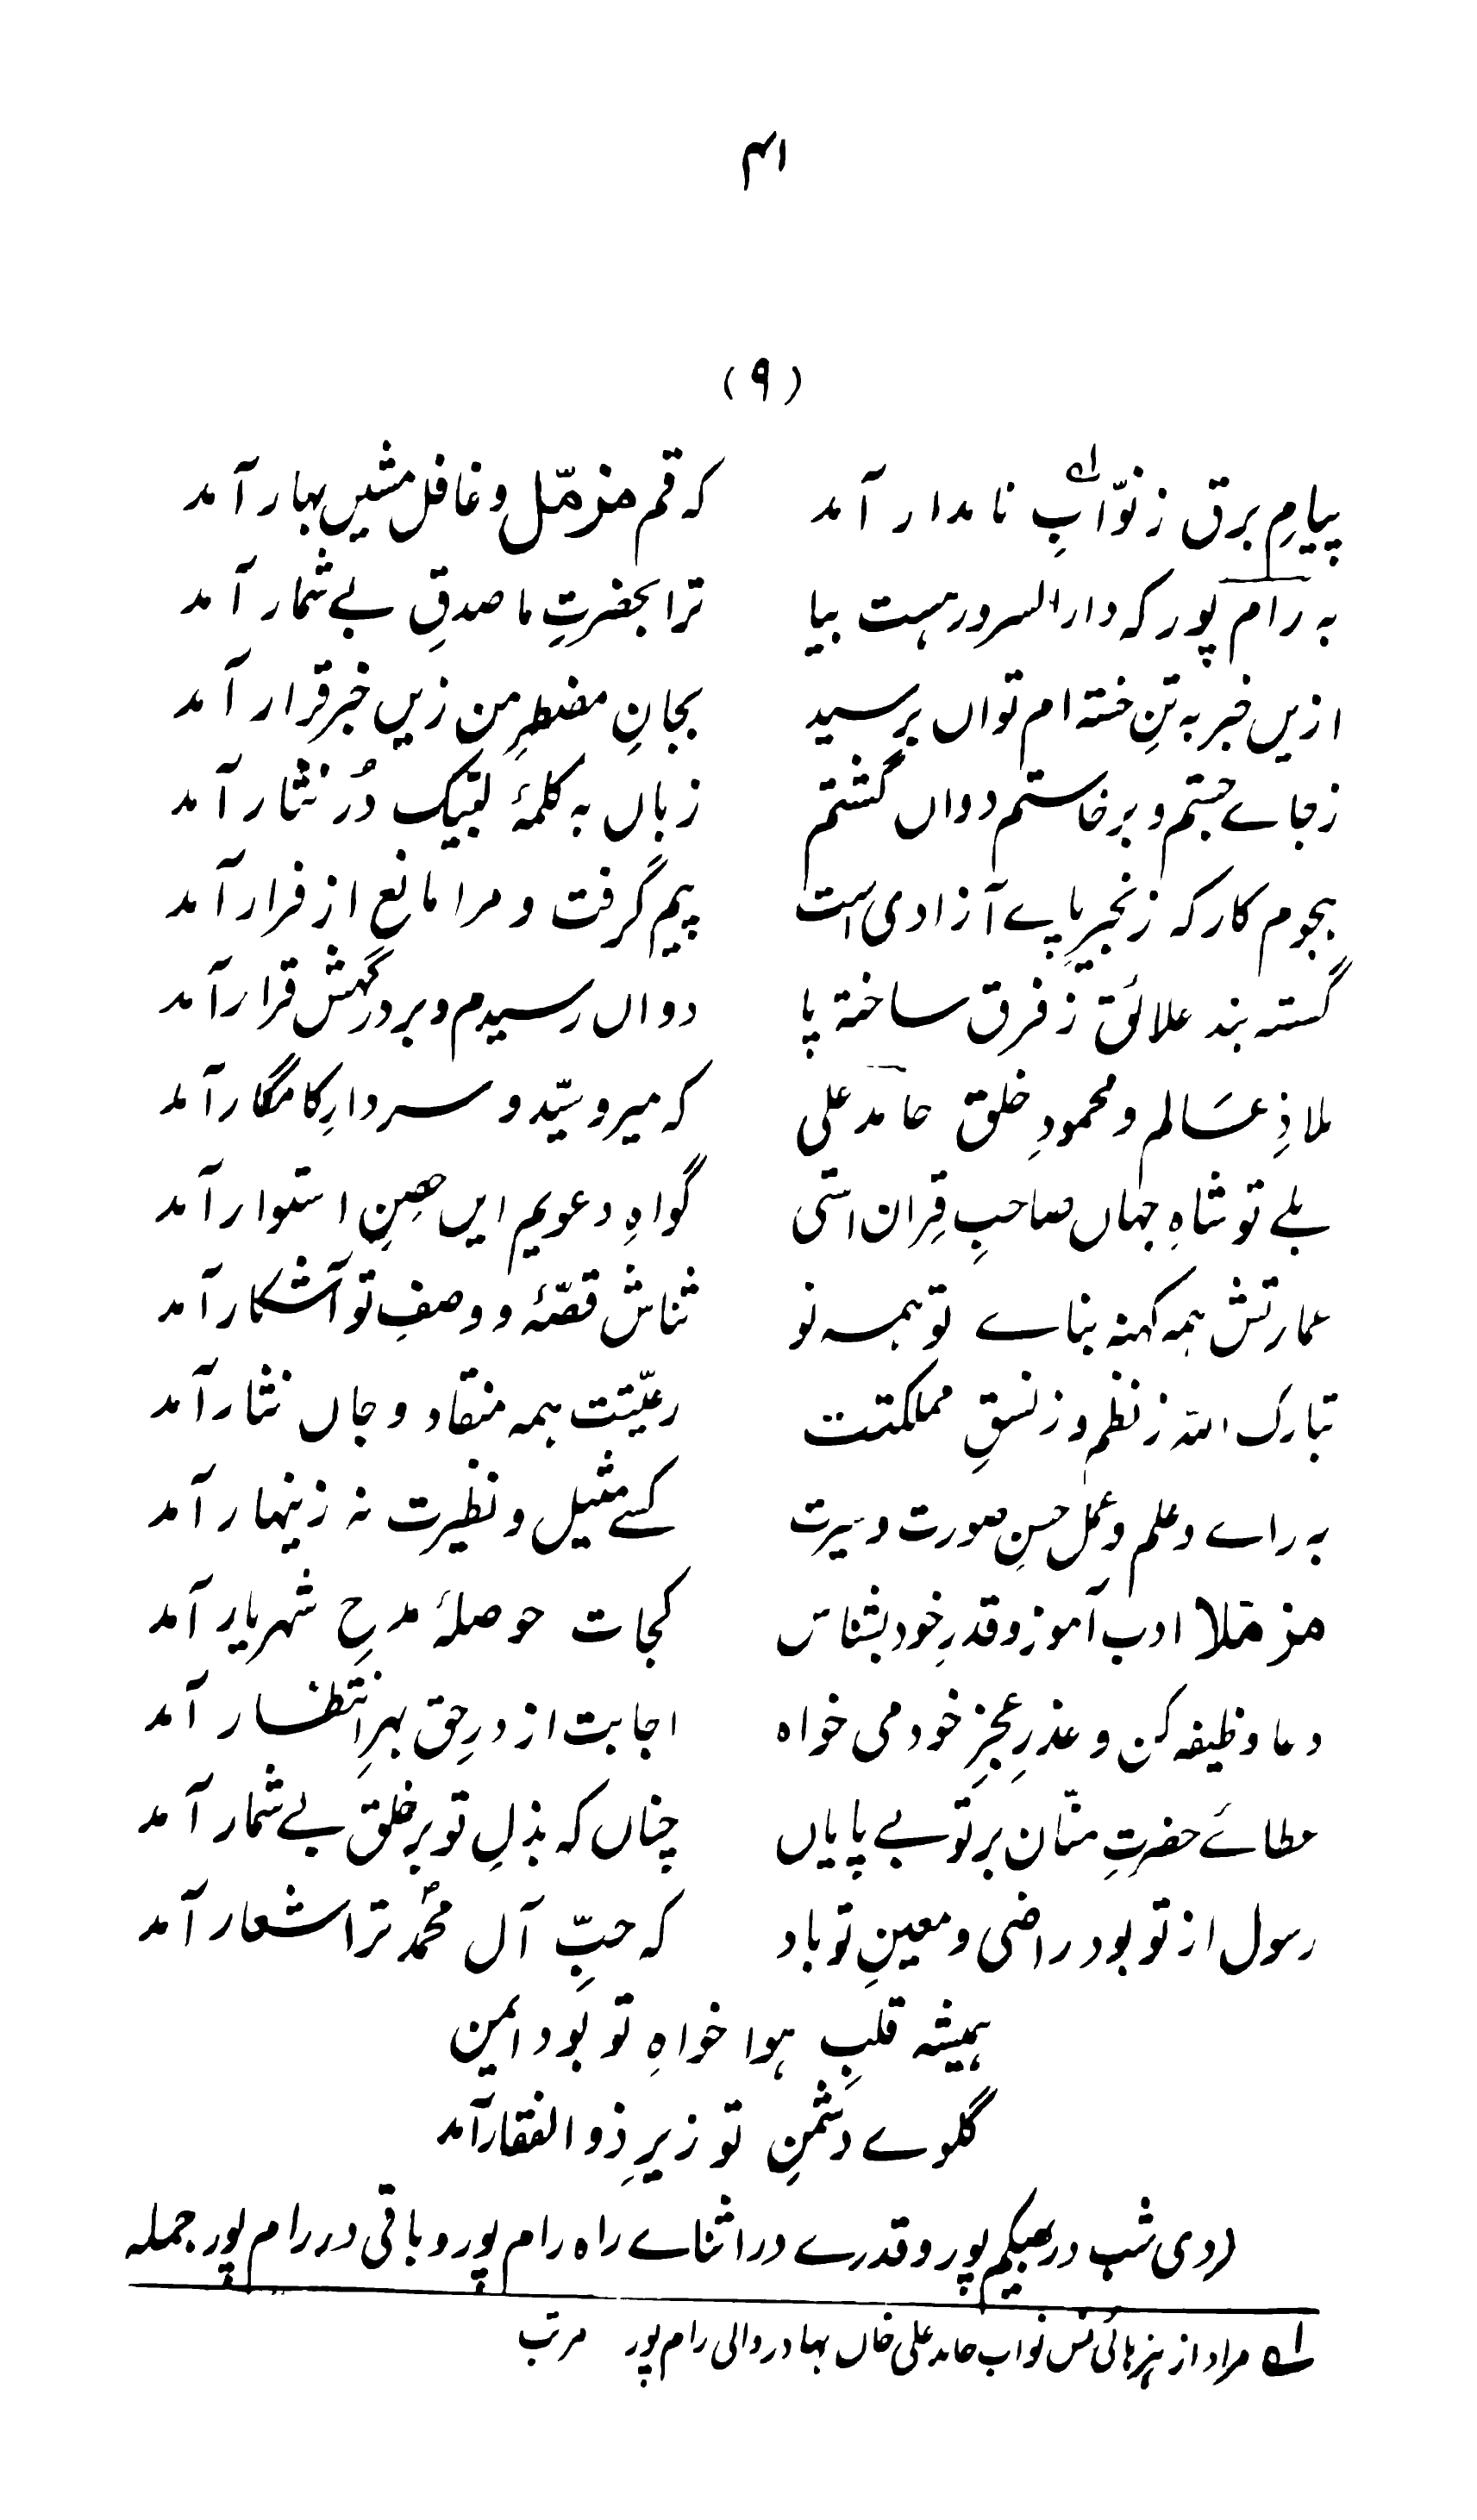 ۴۱
(۹)
پیامِ برق ز نوّابِ ؎۱ نامدار آمد   که قم مزمّل و غافل مشیں بہار آمد
به رام پور که دارالسرور ہست بیا   ترا بحضرتِ ما صدقِ بے شمار آمد
ازیں خبر به تنِ خسته ام تواں برسید   بجانِ مضطرِ من زیں خبر قرار آمد
زجاے جستم و برخاستم دواں گشتم   زباں به کلمۂ لبّیک دُر نثار آمد
ہجوم کار که زنجیرِ پاے آزادی است   پیم گرفت و مرا مانع از فرار آمد
گسسته بند علائق ز فرق ساخته پا   دواں رسیدم و بر درگہش قرار آمد
ملاذِ عالم و محمودِ خلق حامد علی   که میر و سیّد و سردارِ کامگار آمد
بلے تو شاہِ جہاں صاحبِ قِران استی   گواہِ دعویم ایں حصنِ استوار آمد
عمارتش ہمه کہنه بناے تو ہمه نو   ثناش قصّۂ و وصفِ تو آشکار آمد
تبارک اللہ ز نظم و ز نسقِ مملکتت   رعیّتت ہمه منقاد و جاں نثار آمد
به راے و علم و عمل حسنِ صورت و سیرت   کسے مثیل و نظیرت نه زینہار آمد
مزملا ادب آموز و قدرِ خود بشناس   کجات حوصلۂ مدحِ شہریار آمد
دعا وظیفه کن و عذرِ عجزِ خود می خواه   اجابت از درِ حق بہرِ انتظار آمد
عطائے حضرتِ منّان بر تو بے پایاں   چناں که بذلِ تو بر خلق بے شمار آمد
رسول از تو بود راضی و معینِ تو باد   که حبِّ آل محمدؐ ترا شعار آمد
ہمیشه قلبِ ہوا خواہِ تو بود ایمن
گلوے دشمنِ تو زیرِ ذوالفقار آمد
(دی شب در بھیکم پور و قدرے در اثناے راه رام پور و باقی در رام پور جمله
؎۱ مراد از ہز ہائی نس نواب حامد علی خاں بہادر والی رام پور   مرتب